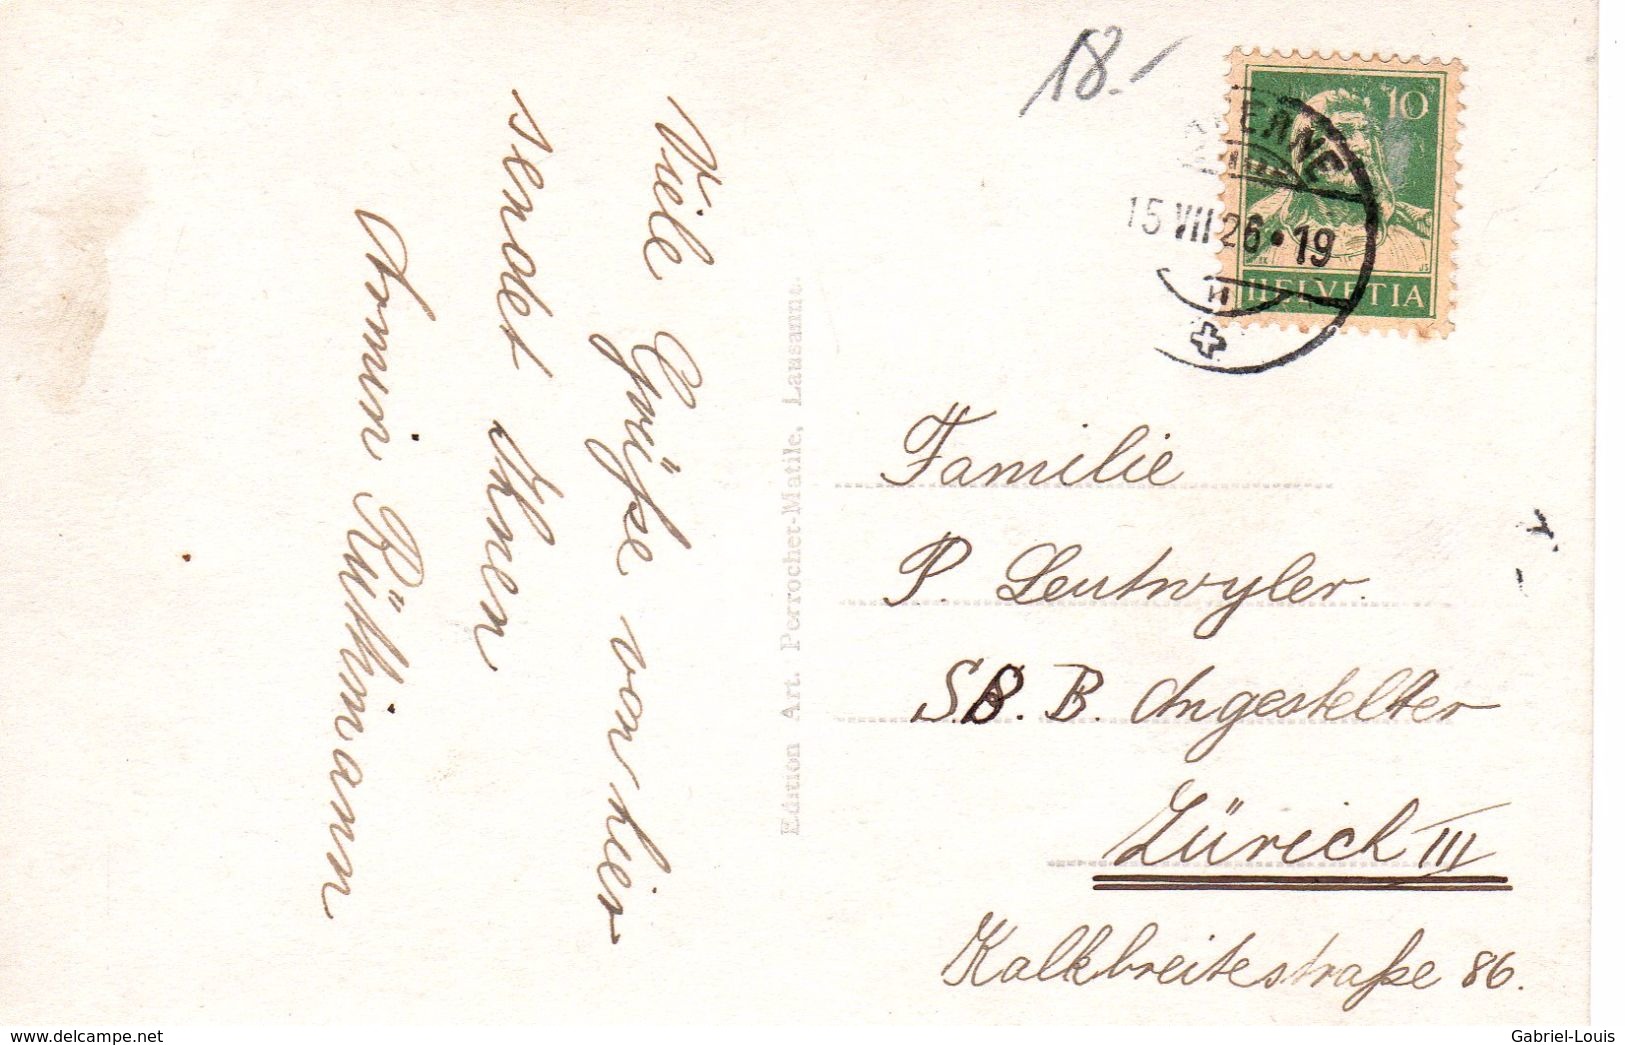 18.-
10
HELVETIA
15 VII 26 • 19
Viele Grüße von hier
sendet Ihnen
Armin Rüthmann
Edition Art. Perrochet-Matile, Lausanne.
Familie
P. Leutwyler.
S.B.B. Angestellter
Zürich III
Kalkbreitestraße 86.
delcampe.net
Gabriel-Louis